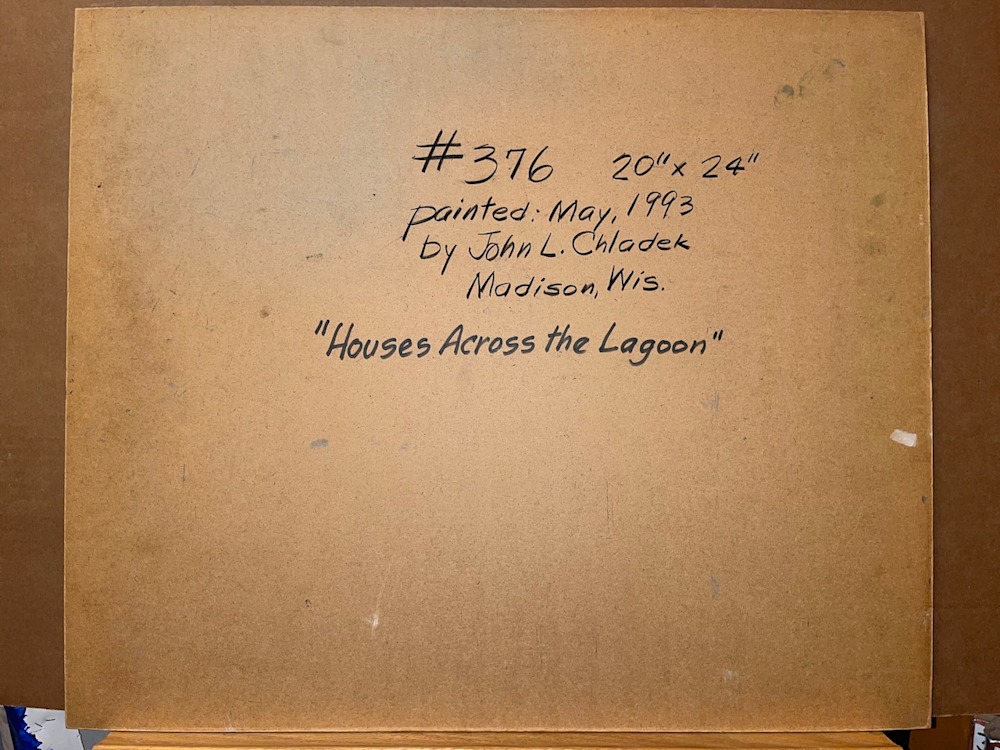 #376 20"x 24"
painted: May, 1993
by John L. Chladek
Madison, Wis.
"Houses Across the Lagoon"